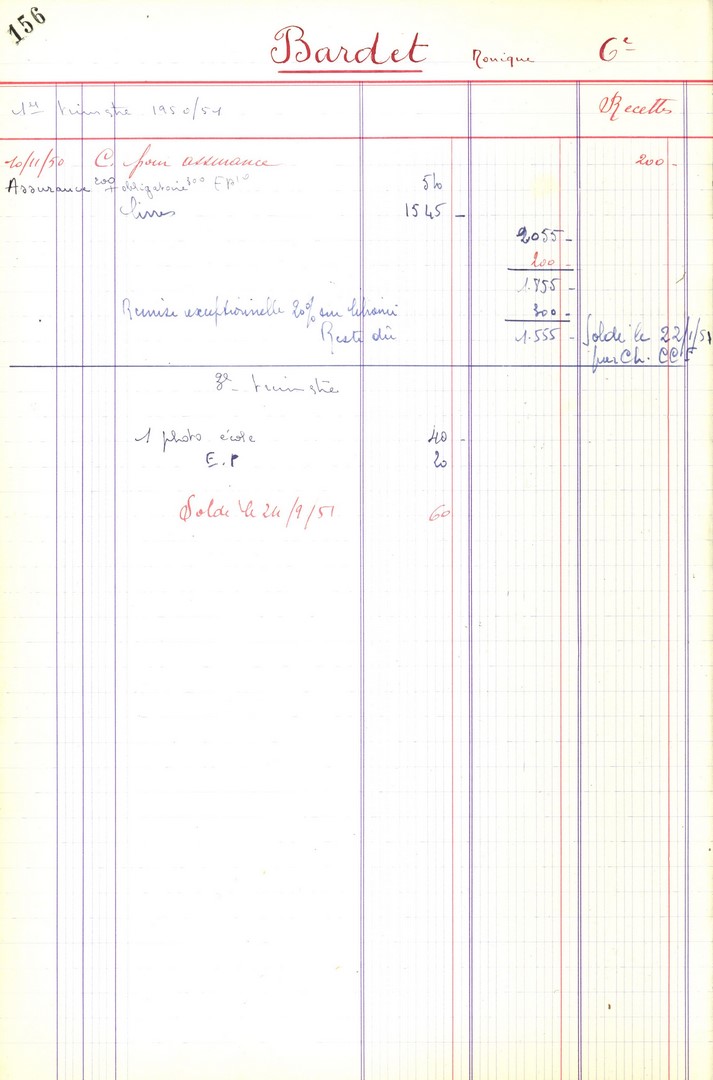 156
Bardet Monique 6e
1er trimestre 1950/51 Recettes
10/11/50 C. pour assurance 200 -
Assurance 200 + obligatoire 300 EP10 510
livres 1545 -
2055 -
200 -
1.855 -
Remise exceptionnelle 20% sur 300 -
Reste dû 1.555 - Soldé le 22/1/51
par Ch. CCP
trimestre
1 photo école 40 -
E.P 20
Soldé le 24/9/51 60